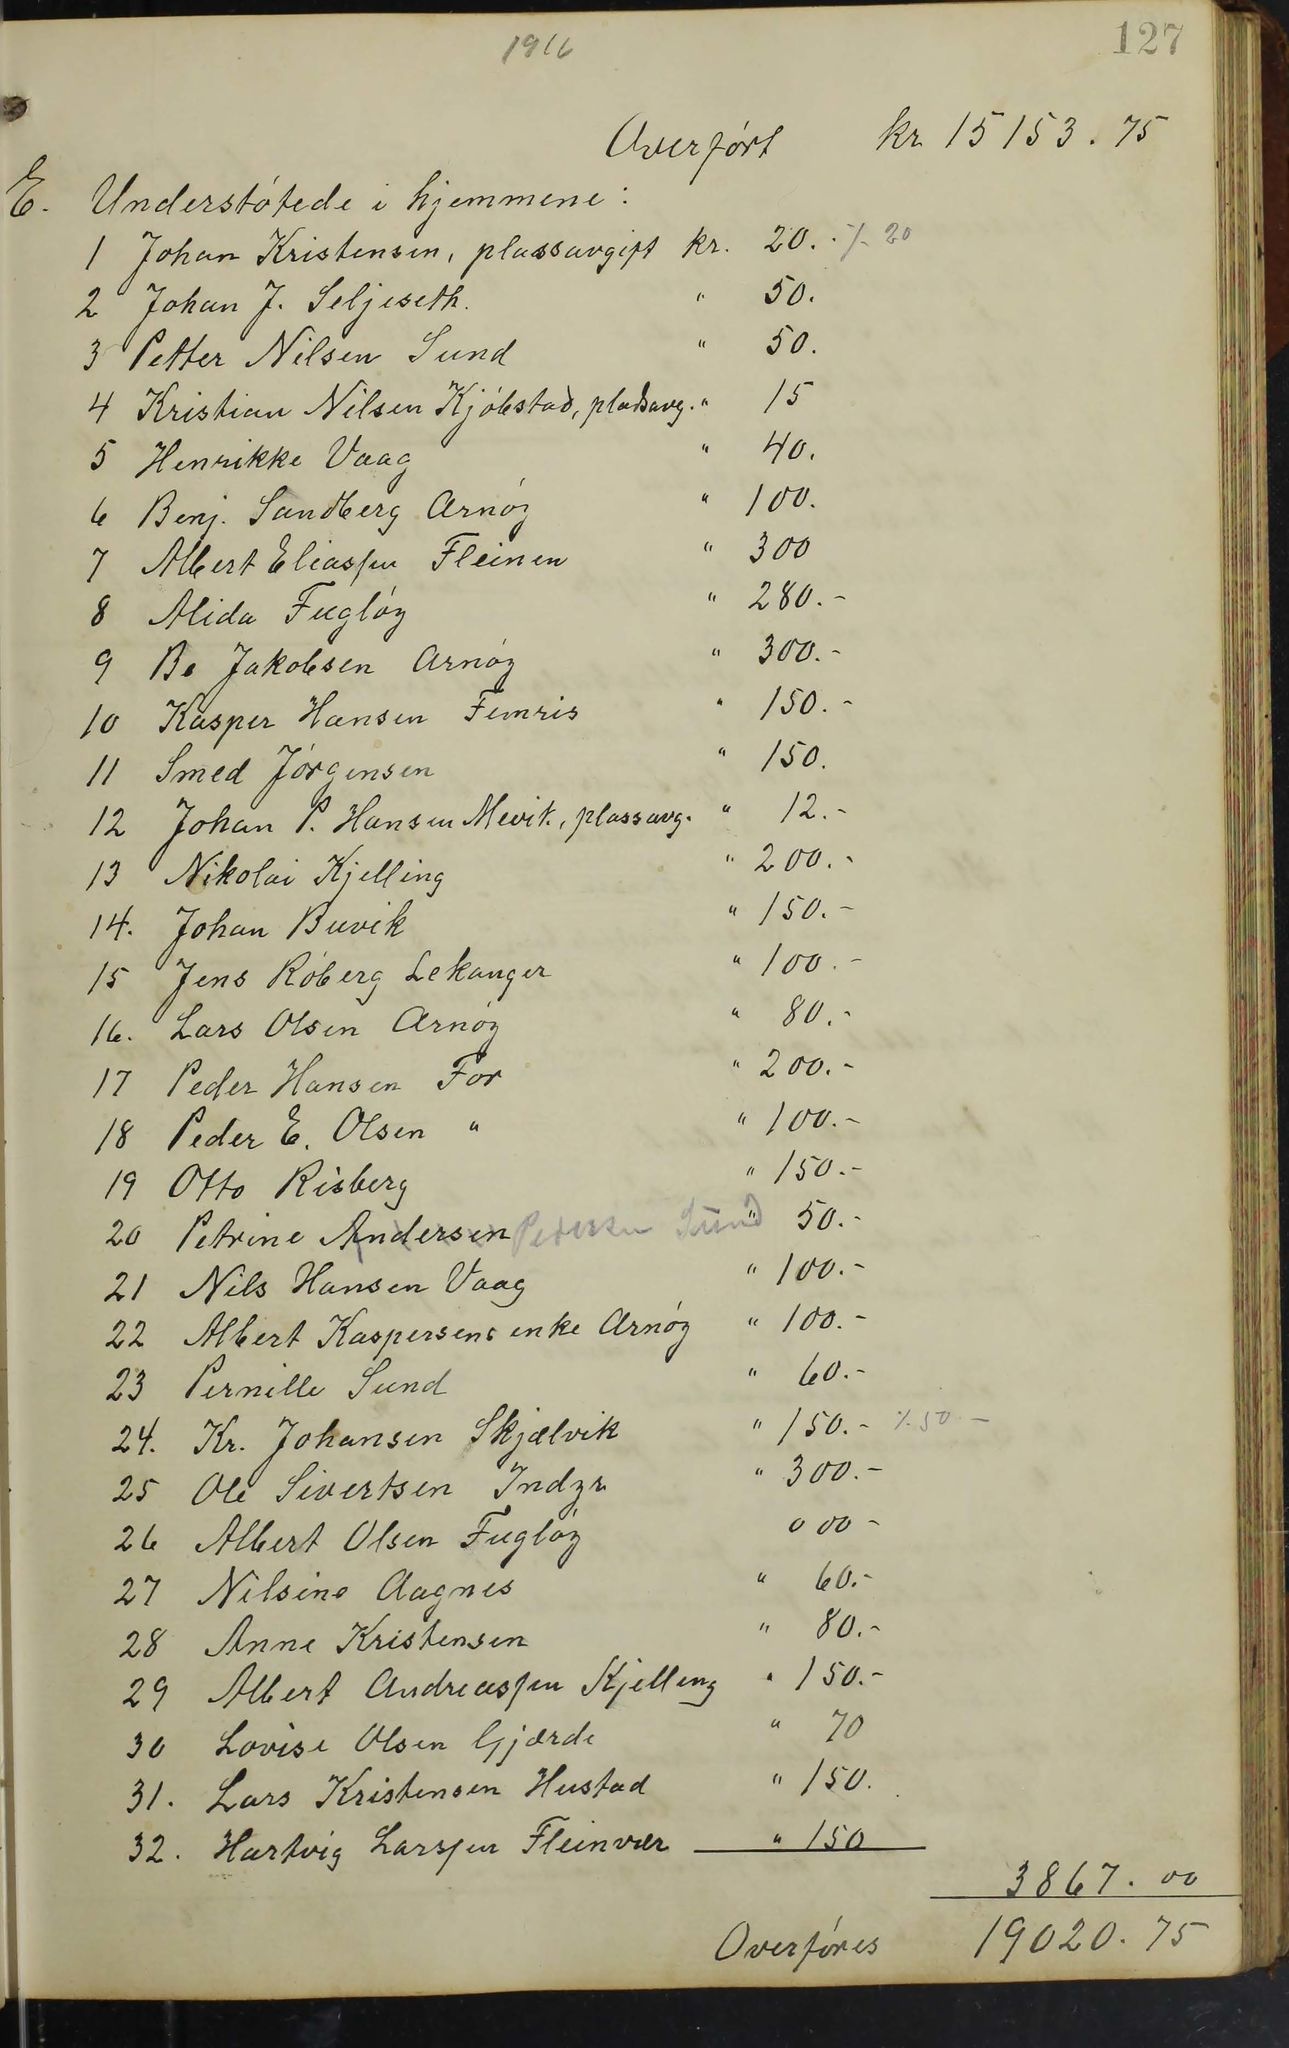 1916
127
Overført kr 15153.75
E. Understøtede i hjemmene:
1 Johan Kristensen, plassavgift kr. 20. ./. 20
2 Johan J. Seljeseth. " 50.
3 Petter Nilsen Sund " 50.
4 Kristian Nilsen Kjøbstad, pladsavg. " 15
5 Henrikke Vaag " 40.
6 Benj. Sandberg Arnøy " 100.
7 Albert Eliassen Fleinen " 300
8 Alida Fugløy " 280.-
9 Be Jakobsen Arnøy " 300.-
10 Kasper Hansen Femris " 150.-
11 Smed Jørgensen " 150.
12 Johan P. Hansen Mevik, plassavg. " 12.-
13 Nikolai Kjelling " 200.-
14. Johan Buvik " 150.-
15 Jens Røberg Lekanger " 100.-
16. Lars Olsen Arnøy " 80.-
17 Peder Hansen For " 200.-
18 Peder E. Olsen " " 100.-
19 Otto Risberg " 150.-
20 Petrine Andersen Petersen Sund " 50.-
21 Nils Hansen Vaag " 100.-
22 Albert Kaspersens enke Arnøy " 100.-
23 Pernille Sund " 60.-
24. Kr. Johansen Skjælvik " 150.- ./. 50.-
25 Ole Sivertsen Indyr " 300.-
26 Albert Olsen Fugløy 000-
27 Nilsine Aagnes " 60.-
28 Anne Kristensen " 80.-
29 Albert Andreassen Kjelling " 150.-
30 Lovise Olsen Gjærde " 70
31. Lars Kristensen Hustad " 150.
32. Hartvig Larssen Fleinvær " 150
3867.00
Overføres 19020.75